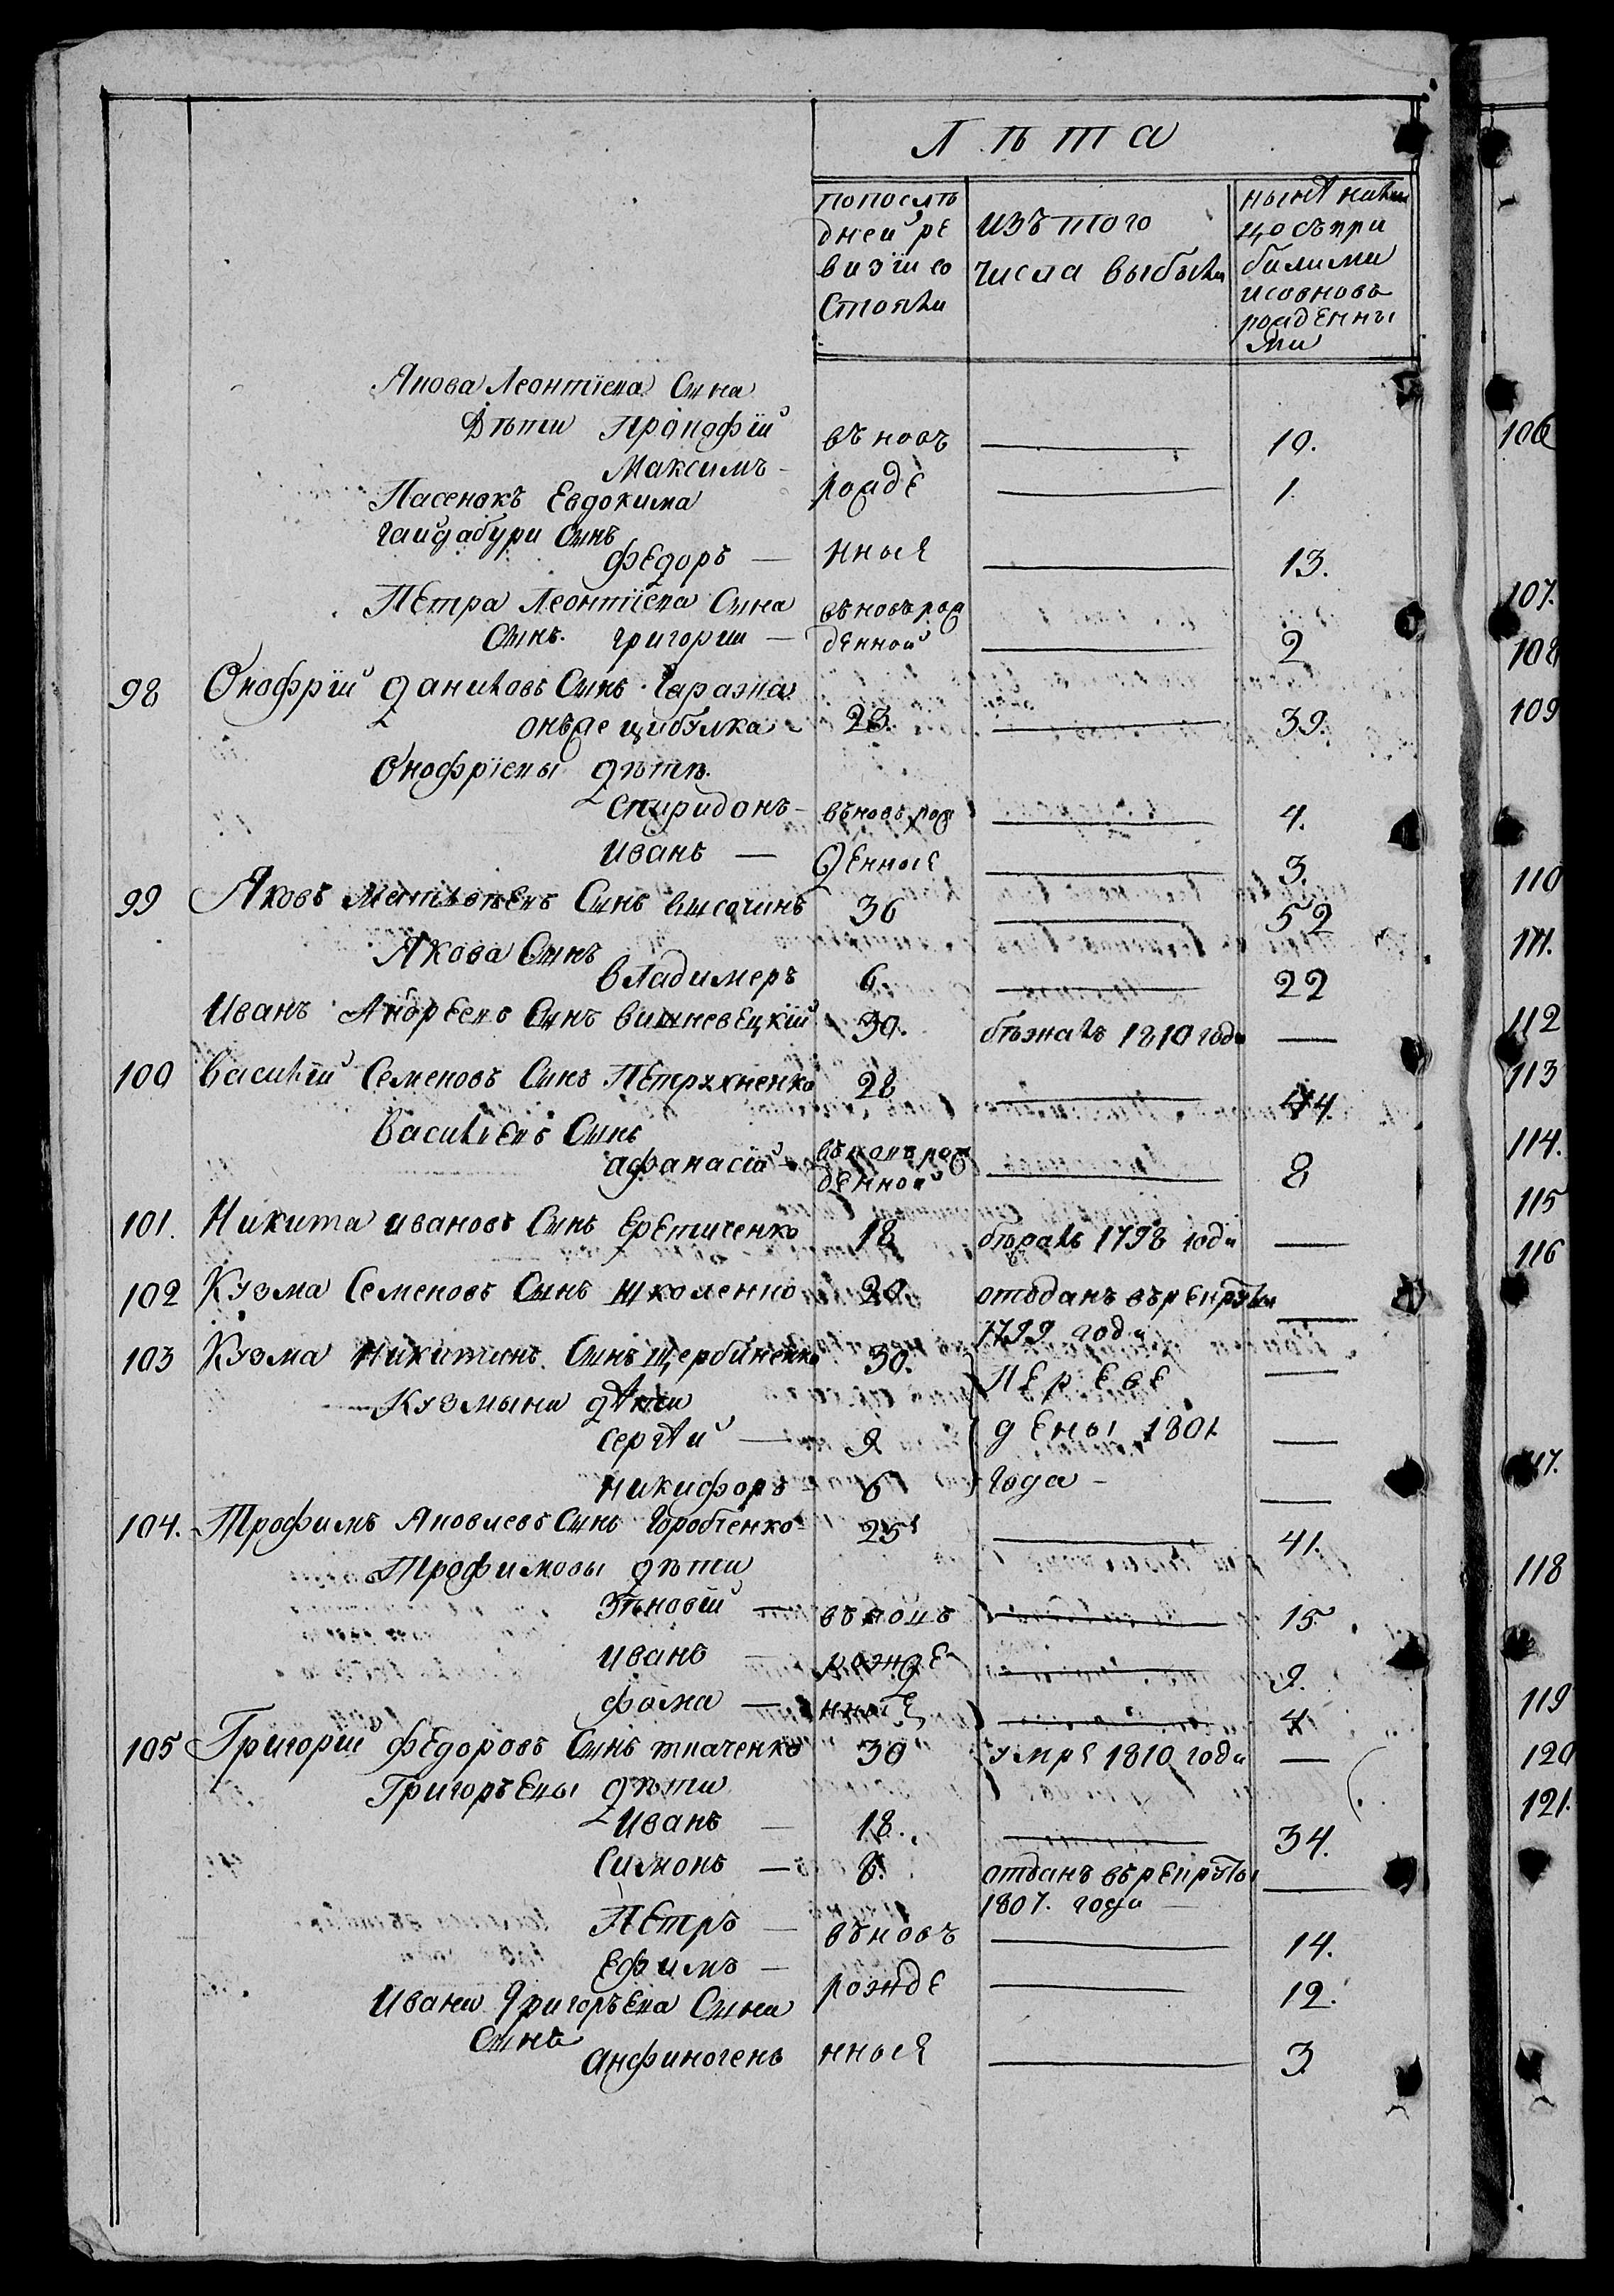 Лѣта
попослѣ
дней ре
визїи со
стояли
изъ того
числа выбыли
нынѣ на ли
цо съ при
былыми
и совновь
рожденны
ми
Якова Леонтїева Сына
Дѣти Прокофїй въ новъ — 10.
Максимъ рожде — 1.
Пасенокъ Евдокима
Гайдабури Сынъ
Федоръ — нные — 13.
Петра Леонтїева Сына въновь рож
Сынъ. Григорїй — денной — 2
98 Онофрїй Даниловъ Сынъ Гаража
онъже Цибулка 23. — 39.
Онофрїевы Дѣти.
Спиридонъ въновь рож — 4.
Иванъ — денные — 3.
99 Яковъ Матвѣевъ Сынъ Височинъ 36 — 52
Якова Сынъ
Владимеръ 6. — 22
Иванъ Андреевъ Сынъ Вишневецкїй 30. бѣжалъ 1810 года —
100 Василїй Семеновъ Сынъ Петрухненко 28 — 44.
Василїевъ Сынъ
Афанасїй въновь рож
денной — 8
101. Никита Ивановъ Сынъ Еретиченко 18 бѣжалъ 1798 года —
102 Кузма Семеновъ Сынъ Школенко 20. отъданъ въ рекруты —
1799 года
103 Кузма Никитинъ Сынъ Щербиненко 30. Переве —
Кузмыни дѣти
Сергѣй — 9 дены 1801 —
Никифоръ 6 года — —
104. Трофимъ Яковлевъ Сынъ Горобченко 25 — 41.
Трофимовы дѣти
Зѣновїй — въновь — 15.
Иванъ — рожде — 9.
Фома — нные — 4
105 Григорїй Федоровъ Сынъ Ткаченко 30 умре 1810 года —
Григорьевы дѣти
Иванъ — 18. — 34.
Симонъ — 6. отданъ въ рекруты —
1807. года
Петръ — въновъ — 14.
Ефимъ — рожде — 12.
Ивана Григорьева Сына
Сынъ
Анфиногенъ нные — 3
106
107.
108
109
110
111.
112
113
114.
115
116
117.
118
119
120
121.